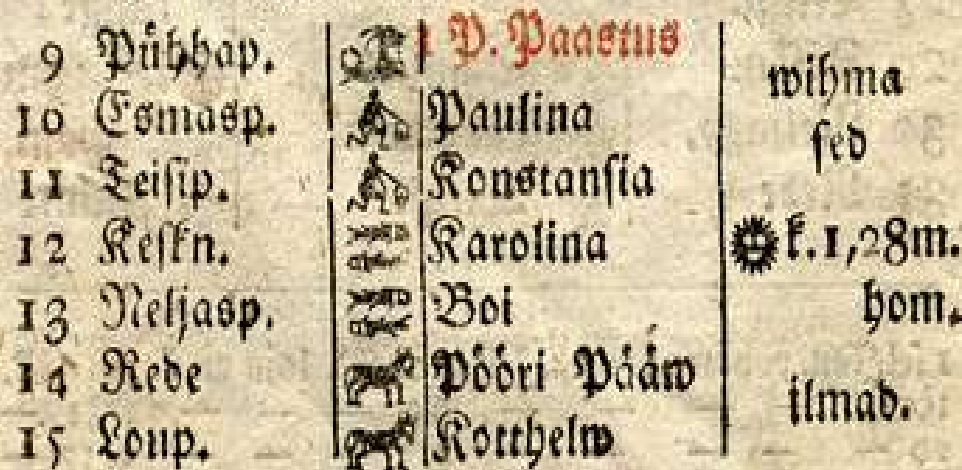 9 Pühhap. 1 P. Paastus
wihma
10 Esmasp. Paulina
sed
11 Teisip. Konstansia
12 Keskn. Karolina k. 1,28m.
13 Neljasp. Boi hom.
14 Rede Pööri Pääw
ilmad.
15 Loup. Kotthelw